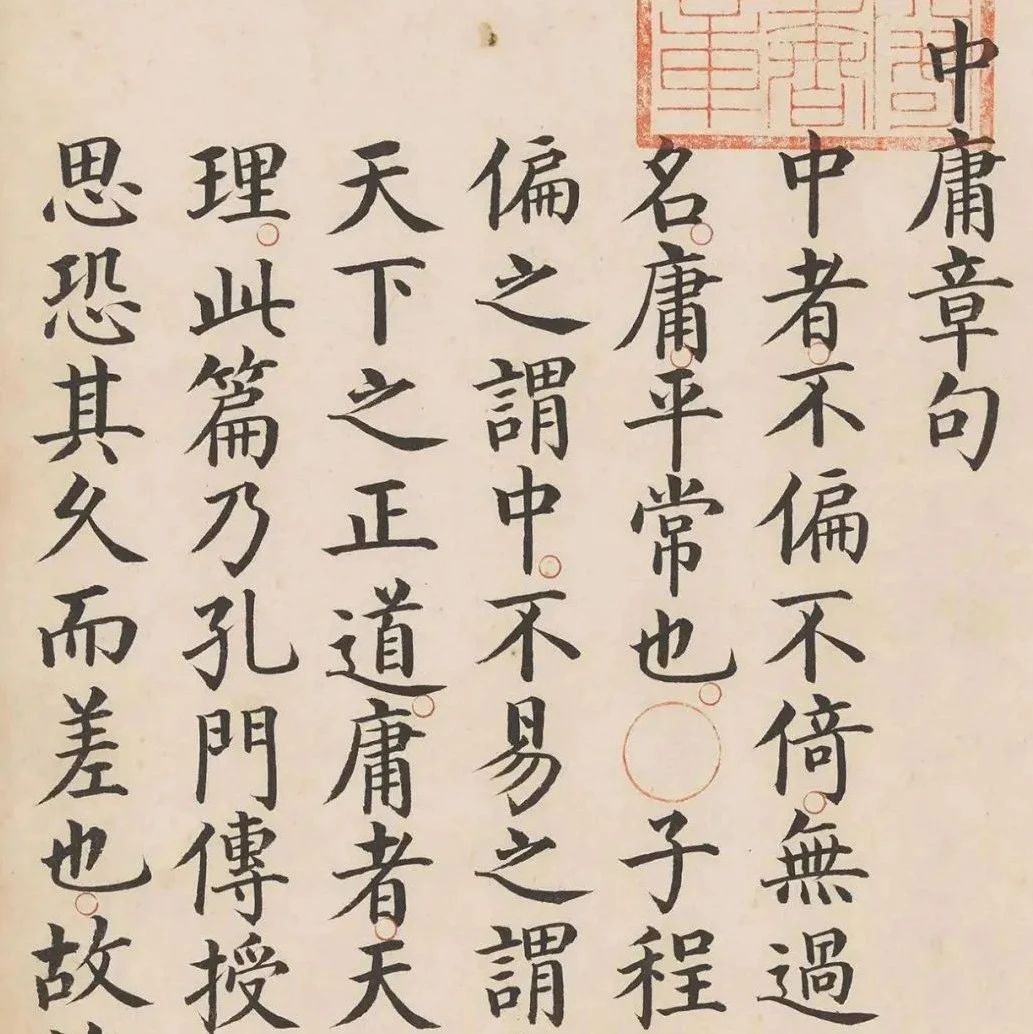 中庸章句
中者不偏不倚無過
名庸平常也子程
偏之謂中不易之謂
天下之正道庸者天
理此篇乃孔門傳授
思恐其久而差也故